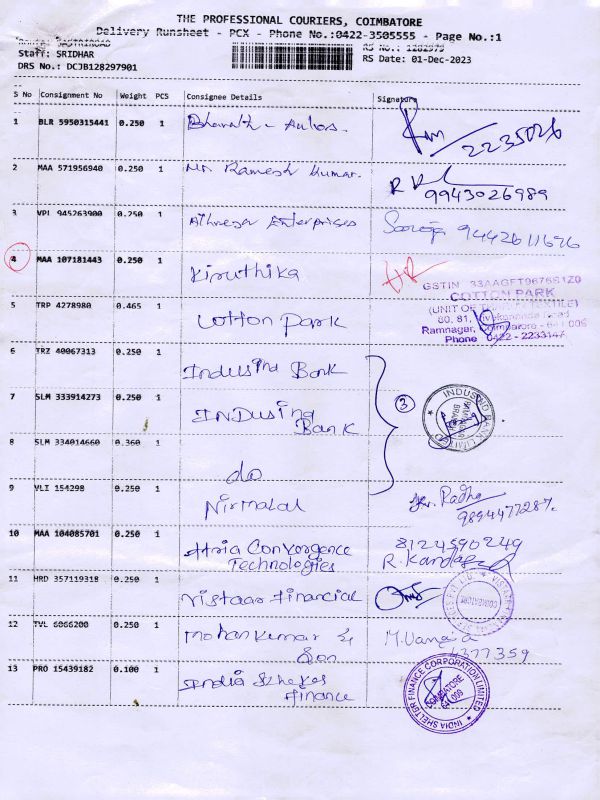 THE PROFESSIONAL COURIERS, COIMBATORE
Delivery Runsheet - PCX - Phone No.:0422-3505555 - Page No.:1
Staff: SRIDHAR
RS No.: 1282979
DRS No.: DCJB128297901
RS Date: 01-Dec-2023
S No Consignment No Weight PCS Consignee Details Signature
1 BLR 5950315441 0.250 1 Bharath - Autos.
2235026
2 MAA 571956940 0.250 1 Mr. Ramesh Kumar.
9943026989
3 VPL 945263900 0.250 1 Athreya Enterprises
4 MAA 107181443 0.250 1 Kiruthika
GSTIN 33AAGFT9676S1Z0
COTTON PARK
80, 81, Vivekananda Road
Ramnagar, Coimbatore - 641 009
Phone 0422 - 2233147
5 TRP 4278980 0.465 1 Cotton Park
6 TRZ 40067313 0.250 1 Indusind Bank
7 SLM 333914273 0.250 1 INDusind
Bank
3
INDUSIND BANK LIMITED
BRANCH
8 SLM 334014660 0.360 1 do
9 VLI 154298 0.250 1 Nirmalal
Radha
9894477287.
10 MAA 104085701 0.250 1 Atria Convergence
Technologies
8124590249
11 HRD 357119318 0.250 1 Vistaar Financial
COIMBATORE
12 TVL 6066200 0.250 1 Mohan Kumar &
Son
13 PRO 15439182 0.100 1 India Shelter
Finance
INDIA SHELTER FINANCE CORPORATION LIMITED
COIMBATORE
641 009